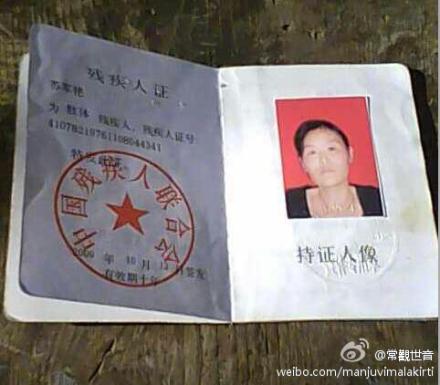 残疾人证
苏
为 肢体 残疾人，残疾人证号
41078219761108044341
特发此证。
中国残疾人联合会
2009 年 10 月 13 日签发
有效期十年
持证人像
@常觀世音
weibo.com/manjuvimalakirti